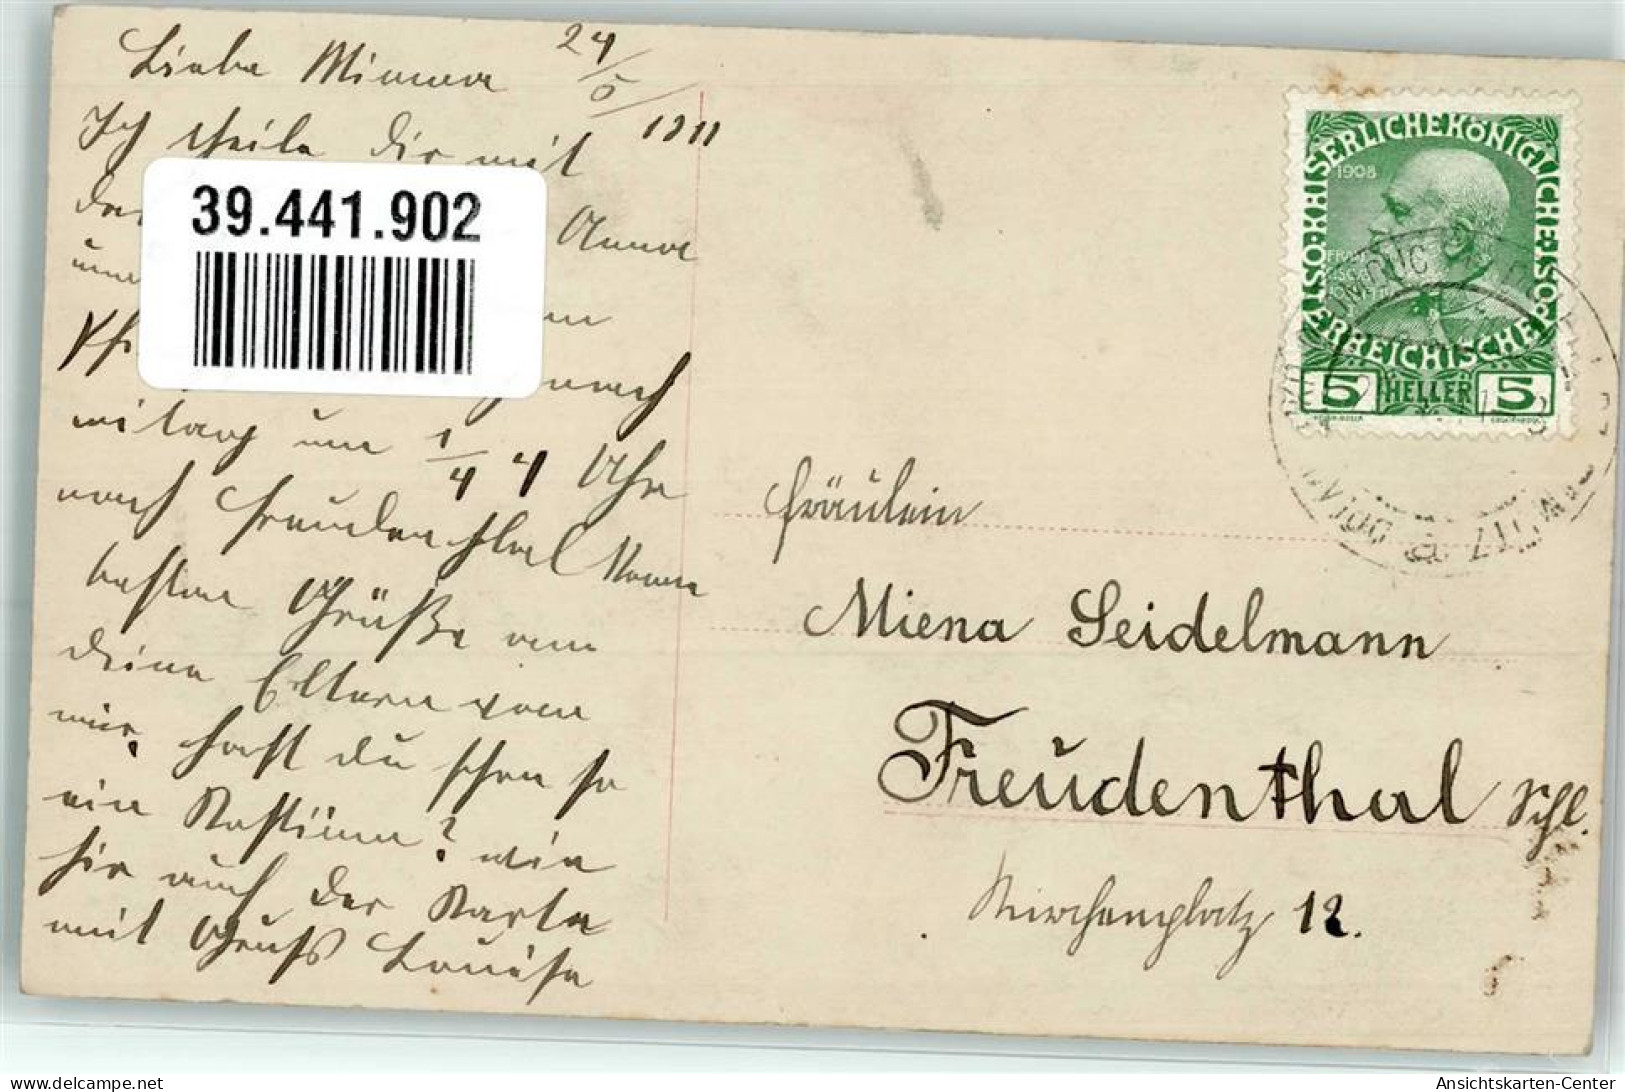 Liebe Minna 24/5 1911
Ich theile Dir mit
das Anna
und
nach
mitag um 1/4 4 Uhr
nach Freudenthal
besten Grüße an
deine Eltern von
mir. hast du schon so
ein Kostüm? wie
hir auf der Karte
mit Gruß Louise
39.441.902
KAISERLICHE KÖNIGLICHE
ÖSTERREICHISCHE POST
1908
5 HELLER 5
Fräulein
Miena Seidelmann
Freudenthal Schl.
Kirchenplatz 12.
Ansichtskarten-Center